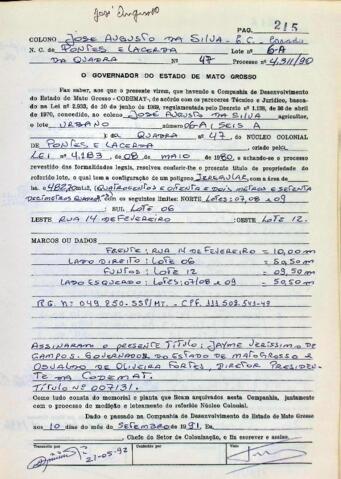 José Augusto
PAG. 215
COLONO JOSE AUGUSTO DA SILVA - B.C. Casado
N. C. de PONTES E LACERDA Lote nº 6-A
DA QUADRA Nº 47 Processo nº 4.311/90
O GOVERNADOR DO ESTADO DE MATO GROSSO
Faz saber, aos que o presente virem, que havendo a Companhia de Desenvolvimento
do Estado de Mato Grosso - CODEMAT-, de acordo com os pareceres Técnico e Jurídico, baseados
na Lei nº 2.933, de 20 de junho de 1969, regulamentada pelo Decreto nº 1.138, de 20 de abril
de 1970, concedido, ao colono JOSÉ AUGUSTO DA SILVA agricultor,
o lote URBANO número 06-A (SEIS A
) da QUADRA nº 47, DO NÚCLEO COLONIAL
DE PONTES E LACERDA criado pela
LEI nº 4.183, 08 de MAIO de 1980, e achando-se o processo
revestido das formalidades legais, resolveu conferir-lhe o presente título de propriedade do
referido lote, o qual tem a configuração de um polígono IRREGULAR, com a área de
482,70 m2, (QUATROCENTOS E OITENTA E DOIS METROS E SETENTA
DECÍMETROS QUADRADOS) com os seguintes limites: NORTE: LOTES: 07, 08 e 09
SUL LOTE 06
LESTE RUA 14 DE FEVEREIRO OESTE LOTE 12.
MARCOS OU DADOS
FRENTE: RUA 14 DE FEVEREIRO = 10,00 m
LADO DIREITO: LOTE 06 = 50,50 m
FUNDOS: LOTE 12 = 09,50 m
LADO ESQUERDO: LOTES: 07/08 e 09 = 50,50 m
R.G. nº 049 850-SSP/MT - CPF. 111.502.541-49
ASSINARAM O PRESENTE TÍTULO: JAYME VERÍSSIMO DE
CAMPOS. GOVERNADOR DO ESTADO DE MATO GROSSO e
OSVALDO DE OLIVEIRA FORTES, DIRETOR PRESIDEN-
TE DA CODEMAT.
TÍTULO Nº 007131.
Como tudo consta do memorial e planta que ficam arquivados nesta Companhia, juntamente
com o processo de medição e loteamento do referido Núcleo Colonial.
Dado e passado na Companhia de Desenvolvimento do Estado de Mato Grosso
aos 10 dias do mês de SETEMBRO de 1991. Eu,
Chefe do Setor de Colonização, o fiz escrever e assino.
Transcrito por Conferido Visto
21-05-92